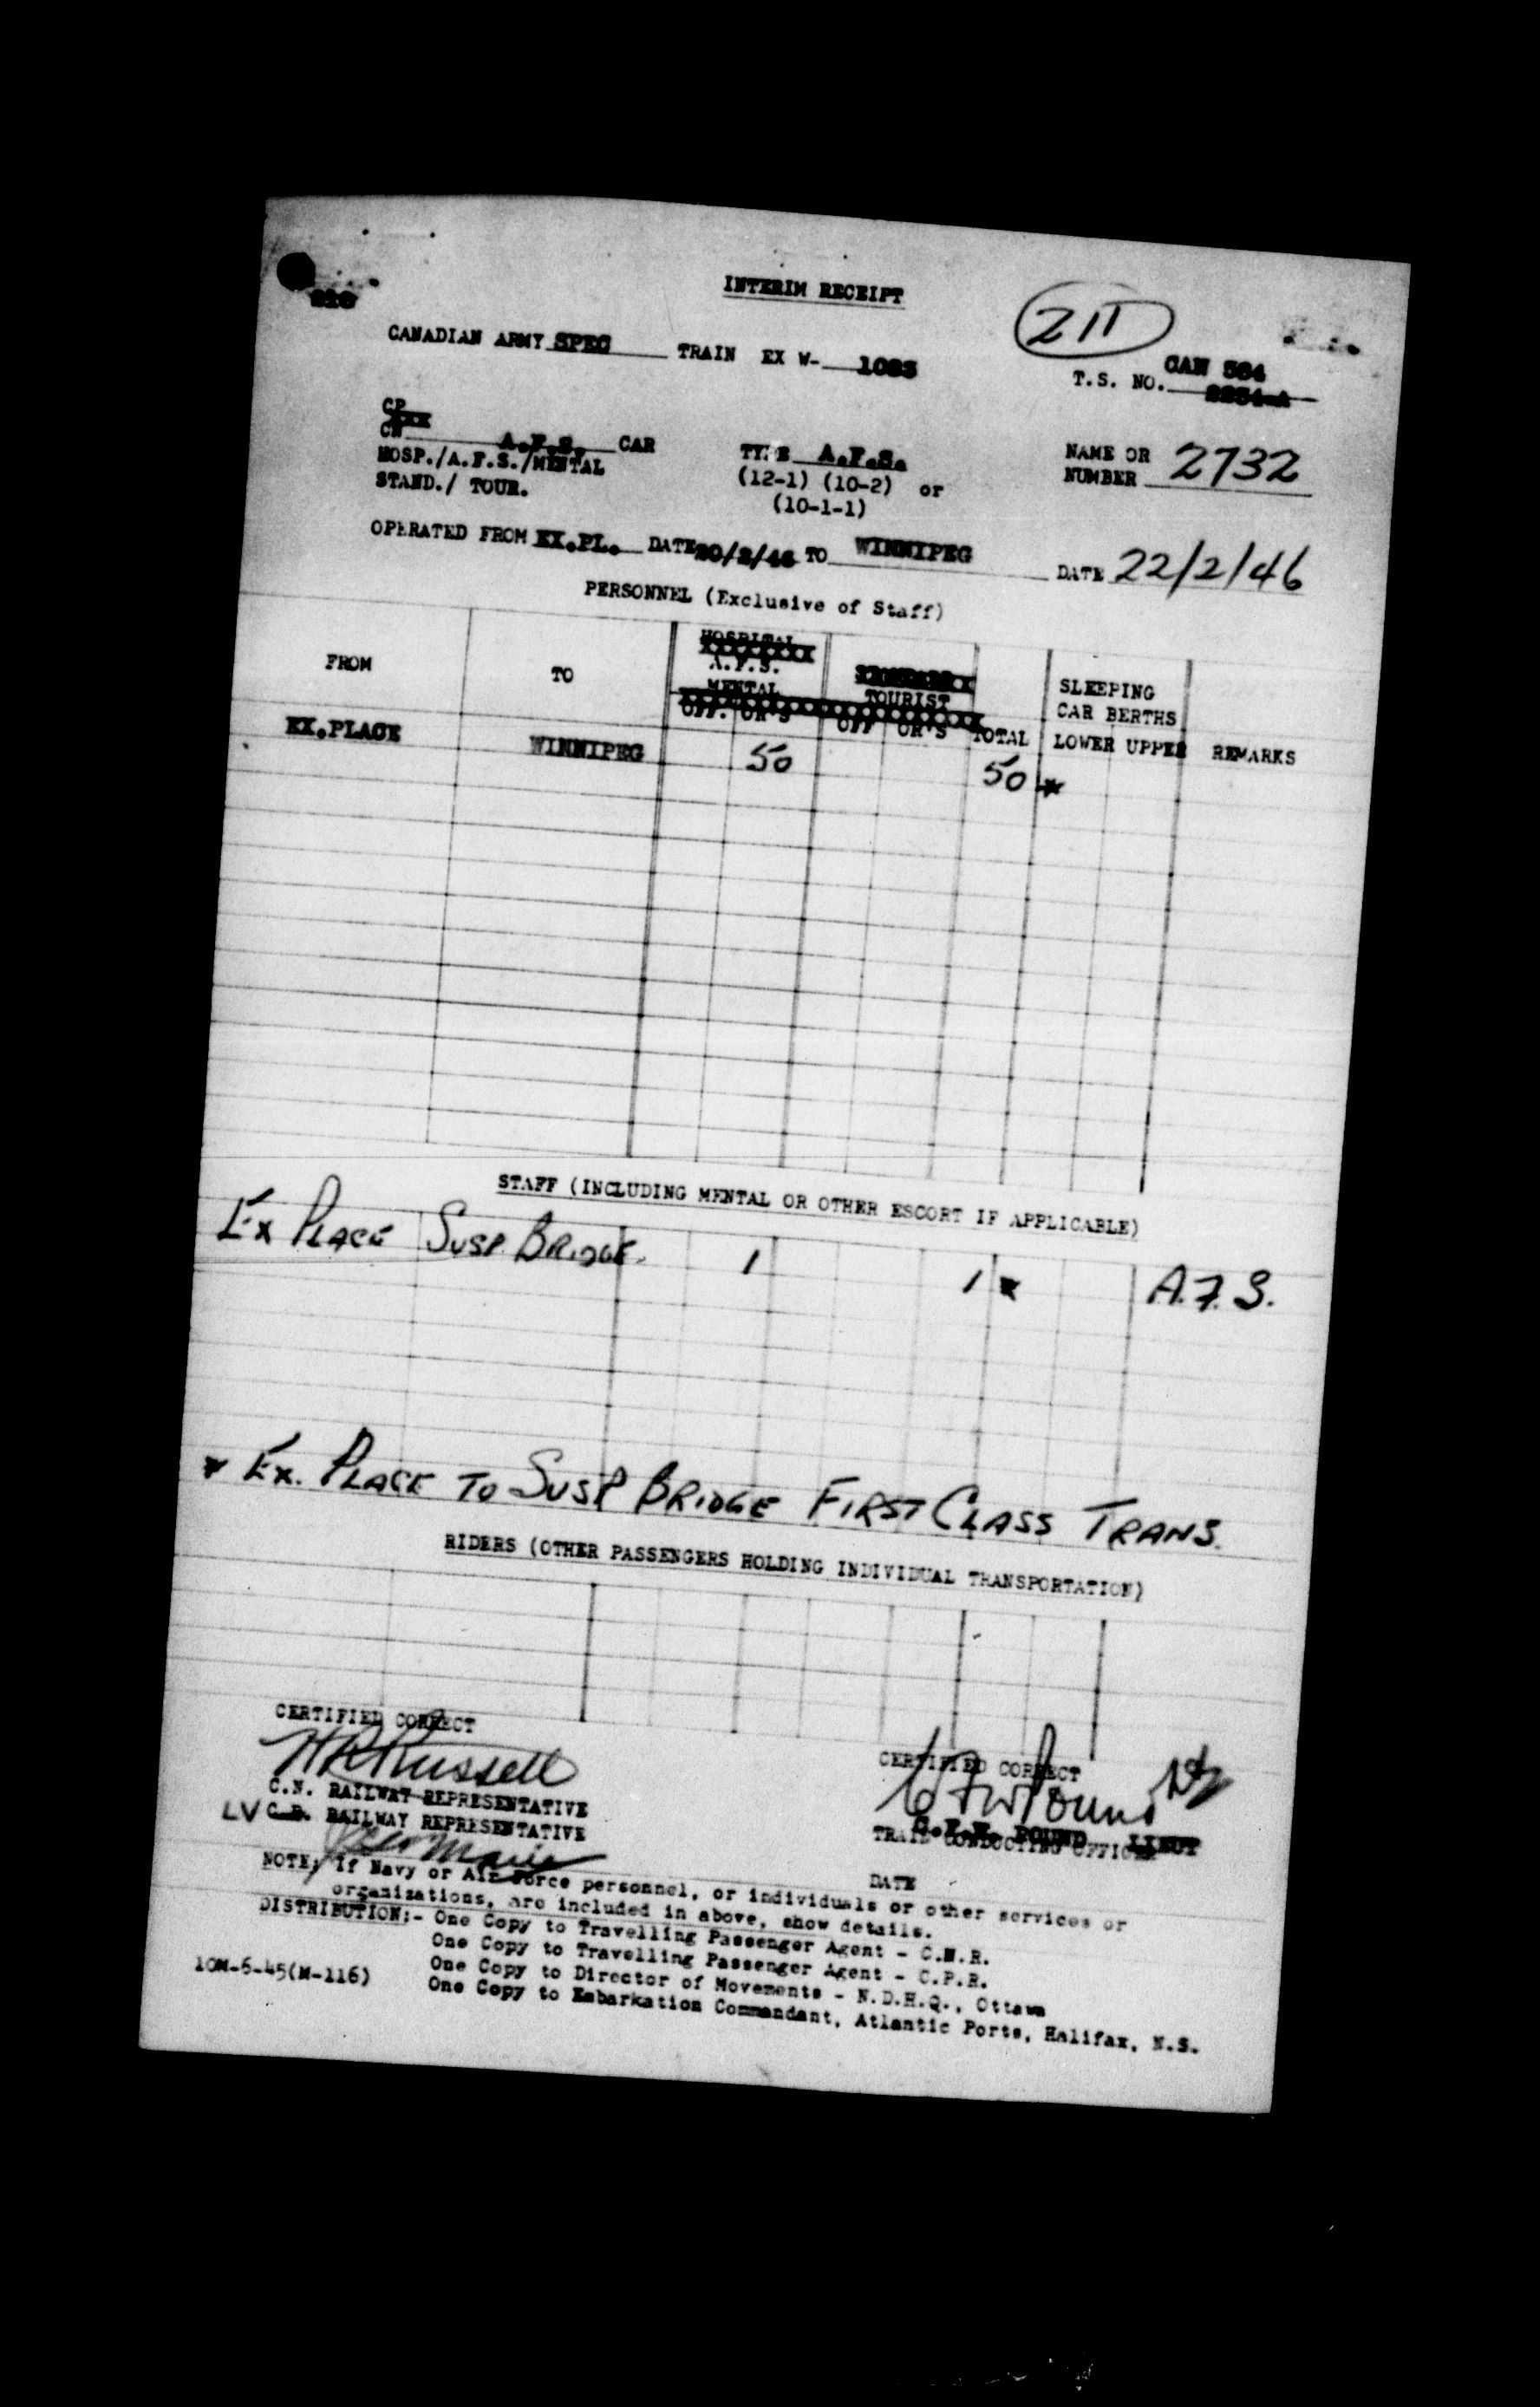 INTERIM RECEIPT
211
CANADIAN ARMY SPEC TRAIN EX W- 1083
CAN 584
T.S. NO. 2234-A
CP
CN A.F.S. CAR
HOSP./A.F.S./MENTAL
STAND./ TOUR.
TYPE A.F.S.
(12-1) (10-2) or
(10-1-1)
NAME OR
NUMBER 2732
OPERATED FROM EX.PL. DATE 20/2/46 TO WINNIPEG DATE 22/2/46
PERSONNEL (Exclusive of Staff)
FROM TO HOSPITAL A.F.S. MENTAL OFF. OR'S TOURIST OFF OR'S TOTAL SLEEPING CAR BERTHS LOWER UPPER REMARKS
EX.PLACE WINNIPEG 50 50 *
STAFF (INCLUDING MENTAL OR OTHER ESCORT IF APPLICABLE)
EX PLACE SUSP. BRIDGE. 1 1 * A.F.S.
* EX. PLACE TO SUSP BRIDGE FIRST CLASS TRANS.
RIDERS (OTHER PASSENGERS HOLDING INDIVIDUAL TRANSPORTATION)
CERTIFIED CORRECT
HRRussell
C.N. RAILWAY REPRESENTATIVE
LV C.P. RAILWAY REPRESENTATIVE
CERTIFIED CORRECT
POUND LIEUT
TRAIN CONDUCTING OFFICER
DATE
NOTE; If Navy or Air Force personnel, or individuals or other services or
organizations, are included in above, show details.
DISTRIBUTION:- One Copy to Travelling Passenger Agent - C.N.R.
One Copy to Travelling Passenger Agent - C.P.R.
One Copy to Director of Movements - N.D.H.Q., Ottawa
One Copy to Embarkation Commandant, Atlantic Ports, Halifax, N.S.
10M-6-45(M-116)